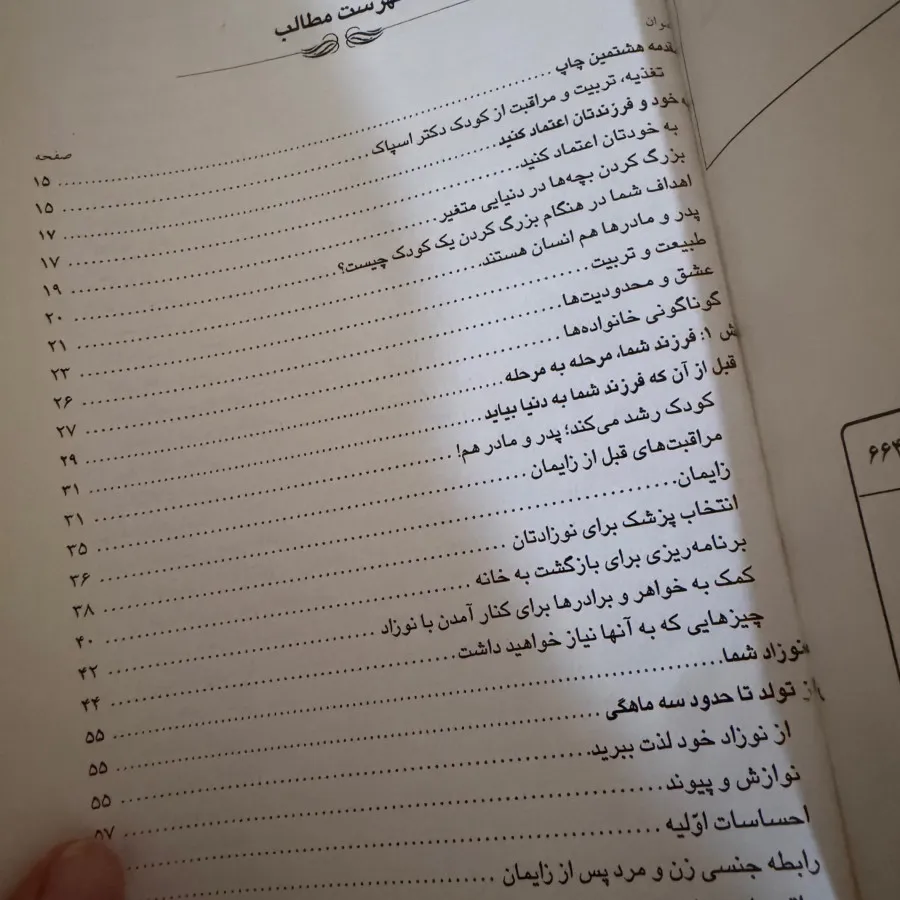 فهرست مطالب
صفحه
مقدمه هشتمین چاپ ........ ۱۵
تغذیه، تربیت و مراقبت از کودک دکتر اسپاک ........ ۱۵
خود و فرزندتان اعتماد کنید ........ ۱۷
به خودتان اعتماد کنید ........ ۱۷
بزرگ کردن بچه‌ها در دنیایی متغیر ........ ۱۹
اهداف شما در هنگام بزرگ کردن یک کودک چیست؟ ........ ۲۰
پدر و مادرها هم انسان هستند ........ ۲۱
طبیعت و تربیت ........ ۲۳
عشق و محدودیت‌ها ........ ۲۶
گوناگونی خانواده‌ها ........ ۲۷
ش ۱: فرزند شما، مرحله به مرحله ........ ۲۹
قبل از آن که فرزند شما به دنیا بیاید ........ ۳۱
کودک رشد می‌کند؛ پدر و مادر هم! ........ ۳۱
مراقبت‌های قبل از زایمان ........ ۳۵
زایمان ........ ۳۶
انتخاب پزشک برای نوزادتان ........ ۳۸
برنامه‌ریزی برای بازگشت به خانه ........ ۴۰
کمک به خواهر و برادرها برای کنار آمدن با نوزاد ........ ۴۲
چیزهایی که به آنها نیاز خواهید داشت ........ ۴۴
نوزاد شما ........ ۵۵
از تولد تا حدود سه ماهگی ........ ۵۵
از نوزاد خود لذت ببرید ........ ۵۵
نوازش و پیوند ........ ۵۷
احساسات اوّلیه ........
رابطه جنسی زن و مرد پس از زایمان ........
۶۶۴